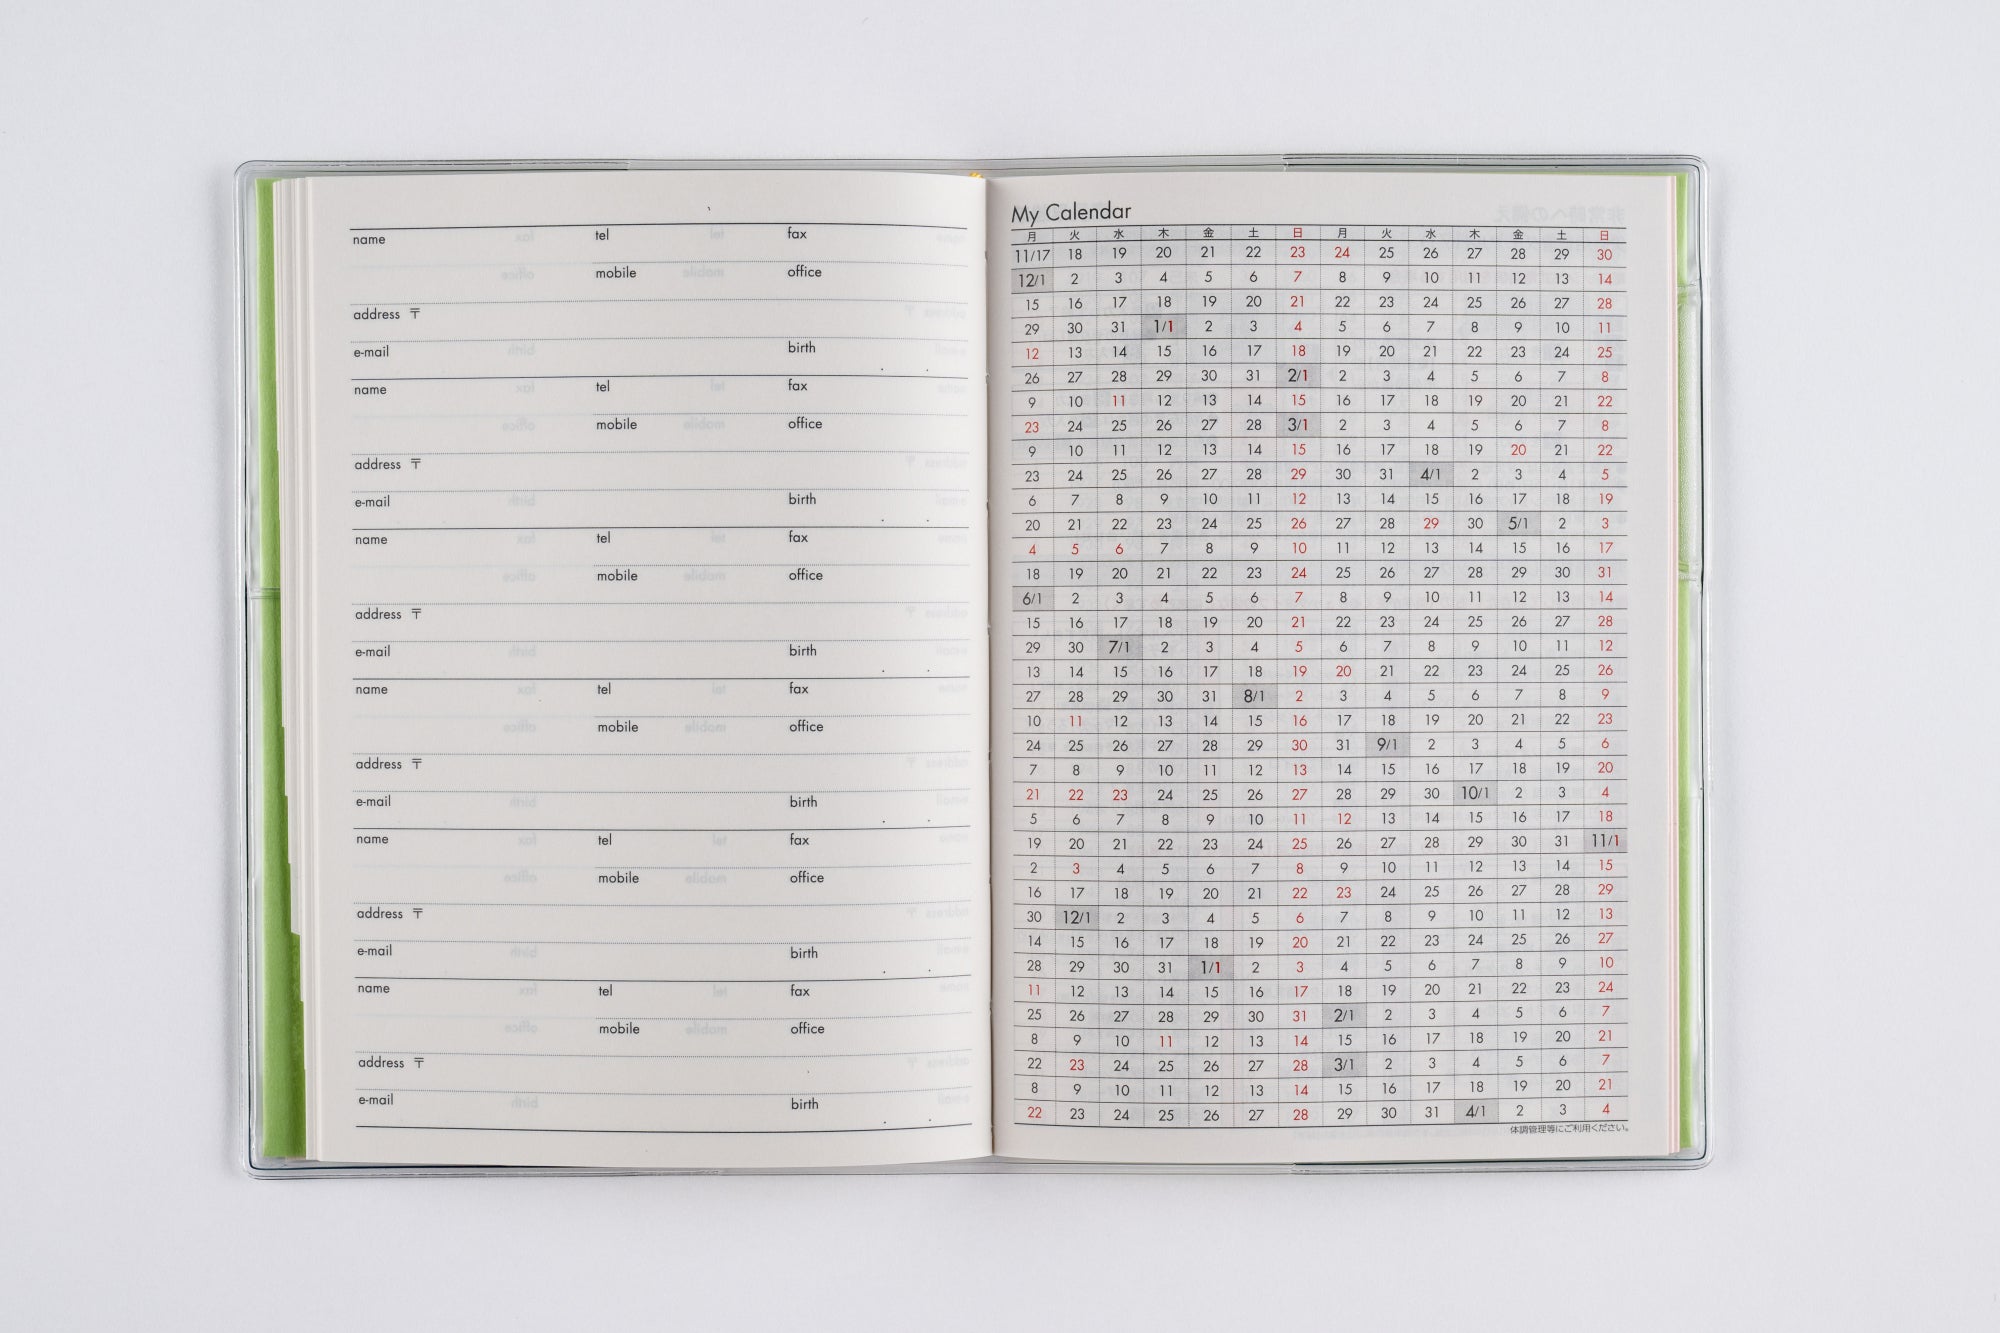 name tel fax
mobile office
address 〒
e-mail birth
. .
name tel fax
mobile office
address 〒
e-mail birth
. .
name tel fax
mobile office
address 〒
e-mail birth
. .
name tel fax
mobile office
address 〒
e-mail birth
. .
name tel fax
mobile office
address 〒
e-mail birth
. .
name tel fax
mobile office
address 〒
e-mail birth
. .
My Calendar
月 火 水 木 金 土 日 月 火 水 木 金 土 日
11/17 18 19 20 21 22 23 24 25 26 27 28 29 30
12/1 2 3 4 5 6 7 8 9 10 11 12 13 14
15 16 17 18 19 20 21 22 23 24 25 26 27 28
29 30 31 1/1 2 3 4 5 6 7 8 9 10 11
12 13 14 15 16 17 18 19 20 21 22 23 24 25
26 27 28 29 30 31 2/1 2 3 4 5 6 7 8
9 10 11 12 13 14 15 16 17 18 19 20 21 22
23 24 25 26 27 28 3/1 2 3 4 5 6 7 8
9 10 11 12 13 14 15 16 17 18 19 20 21 22
23 24 25 26 27 28 29 30 31 4/1 2 3 4 5
6 7 8 9 10 11 12 13 14 15 16 17 18 19
20 21 22 23 24 25 26 27 28 29 30 5/1 2 3
4 5 6 7 8 9 10 11 12 13 14 15 16 17
18 19 20 21 22 23 24 25 26 27 28 29 30 31
6/1 2 3 4 5 6 7 8 9 10 11 12 13 14
15 16 17 18 19 20 21 22 23 24 25 26 27 28
29 30 7/1 2 3 4 5 6 7 8 9 10 11 12
13 14 15 16 17 18 19 20 21 22 23 24 25 26
27 28 29 30 31 8/1 2 3 4 5 6 7 8 9
10 11 12 13 14 15 16 17 18 19 20 21 22 23
24 25 26 27 28 29 30 31 9/1 2 3 4 5 6
7 8 9 10 11 12 13 14 15 16 17 18 19 20
21 22 23 24 25 26 27 28 29 30 10/1 2 3 4
5 6 7 8 9 10 11 12 13 14 15 16 17 18
19 20 21 22 23 24 25 26 27 28 29 30 31 11/1
2 3 4 5 6 7 8 9 10 11 12 13 14 15
16 17 18 19 20 21 22 23 24 25 26 27 28 29
30 12/1 2 3 4 5 6 7 8 9 10 11 12 13
14 15 16 17 18 19 20 21 22 23 24 25 26 27
28 29 30 31 1/1 2 3 4 5 6 7 8 9 10
11 12 13 14 15 16 17 18 19 20 21 22 23 24
25 26 27 28 29 30 31 2/1 2 3 4 5 6 7
8 9 10 11 12 13 14 15 16 17 18 19 20 21
22 23 24 25 26 27 28 3/1 2 3 4 5 6 7
8 9 10 11 12 13 14 15 16 17 18 19 20 21
22 23 24 25 26 27 28 29 30 31 4/1 2 3 4
体調管理等にご利用ください。